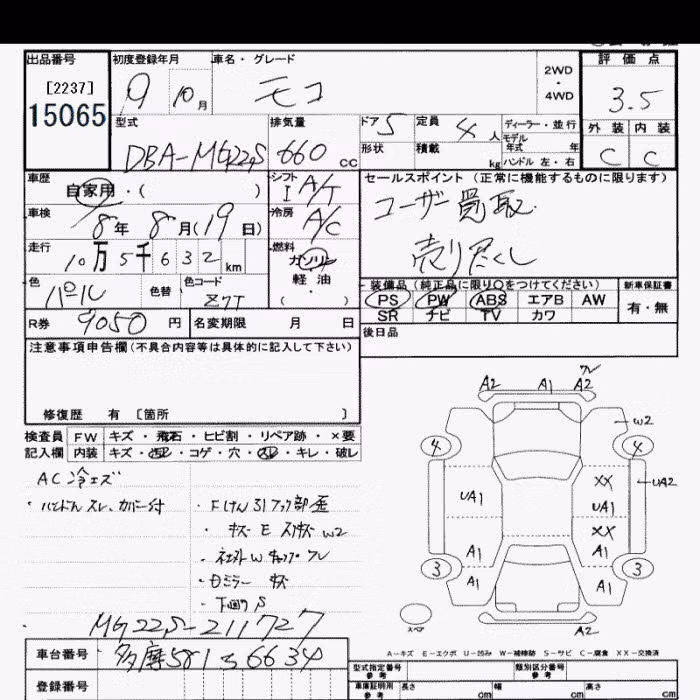 出品番号 初度登録年月 車名・グレード 2WD・4WD 評価点
[2237] 9 10月 モコ 3.5
15065 型式 排気量 ドア 5 定員 4人 ディーラー・並行 外装 内装
DBA-MG22S 660cc 形状 積載 kg モデル年式 年 ハンドル 左・右 C C
車歴 自家用・( ) シフト I A/T セールスポイント (正常に機能するものに限ります)
車検 8年 8月(19日) 冷房 A/C ユーザー買取
走行 10万5千632km 燃料 ガソリン 軽油 (・) 売り尽くし
色 パール 色替 色コード Z7T 装備品 (純正品に限り○をつけてください) 新車保証書
PS PW ABS エアB AW 有・無
R券 9050円 名変期限 月 日 SR ナビ TV カワ
注意事項申告欄(不具合内容等は具体的に記入して下さい) 後日品
修復歴 有 〔箇所 〕
検査員 FW キズ・飛石・ヒビ割・リペア跡・×要
記入欄 内装 キズ・汚レ・コゲ・穴・スレ・キレ・破レ
A2 A1 A2 ワレ
W2
4 4
AC冷エズ
・ハンドルスレ、カバー付
キズ E スリキズ W2
UA1 XX UA1 UA2
XX
A1 A1
3 3
A1 A1
・ロミラー キズ
・下回り S
スペア A2
MG22S-211727
A-キズ E-エクボ U-凹み W-補修跡 S-サビ C-腐食 XX-交換済
車台番号 多摩581 6634
登録番号
型式指定番号 参考 類別区分番号 参考
車庫証明用 参考 長さ cm 幅 cm 高さ cm